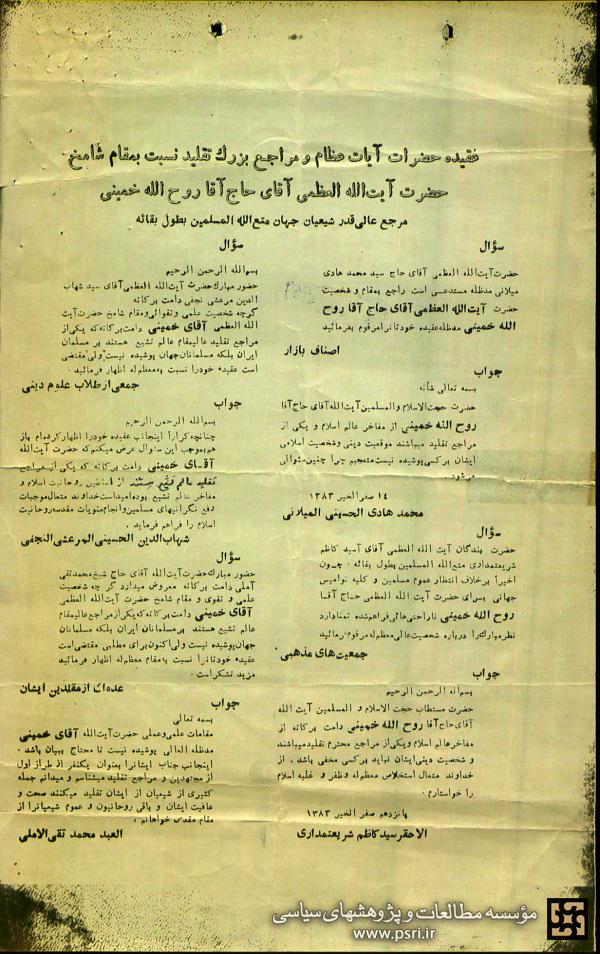 عقیده حضرات آیات عظام و مراجع بزرگ تقلید نسبت بمقام شامخ
حضرت آیت‌الله العظمی آقای حاج آقا روح الله خمینی
مرجع عالی‌قدر شیعیان جهان متع‌الله المسلمین بطول بقائه
سؤال
حضرت آیت‌الله العظمی آقای حاج سید محمد هادی
میلانی مدظله مستدعی است راجع بمقام و شخصیت
حضرت آیت‌الله العظمی آقای حاج آقا روح
الله خمینی مدظله عقیده خودتانرا مرقوم بفرمائید
اصناف بازار
جواب
بسمه تعالی شأنه
حضرت حجت‌الاسلام والمسلمین آیت‌الله آقای حاج آقا
روح الله خمینی از مفاخر عالم اسلام و یکی از
مراجع تقلید میباشند موقعیت دینی وشخصیت اسلامی
ایشان برکسی پوشیده نیست متعجبم چرا چنین سئوالی
میشود.
۱۴ صفر الخیر ۱۳۸۳
محمد هادی الحسینی المیلانی
سؤال
حضرت بندگان آیت الله العظمی آقای آسید کاظم
شریعتمداری متع‌الله المسلمین بطول بقائه . چون
اخیراً برخلاف انتظار عموم مسلمین و کلیه نوامیس
جهانی برای حضرت آیت الله العظمی حاج آقا
روح الله خمینی ناراحتی‌هائی فراهم‌شده تمنادارد
نظر مبارک را درباره شخصیت عالی معظم‌له مرقوم فرمائید
جمعیت‌های مذهبی
جواب
بسم‌اله الرحمن الرحیم
حضرت مستطاب حجت الاسلام و المسلمین آیت الله
آقای حاج آقا روح الله خمینی دامت برکاته از
مفاخر عالم اسلام ویکی از مراجع محترم تقلید میباشند
و شخصیت دینی ایشان نباید برکسی مخفی باشد . از
خداوند متعال استخلاص معظم‌له وظفر و غلبه اسلام
را خواستارم .
پانزدهم صفر الخیر ۱۳۸۳
الاحقر سید کاظم شریعتمداری
سؤال
بسم‌الله الرحمن الرحیم
حضور مبارک حضرت آیت‌الله العظمی آقای سید شهاب
الدین مرعشی نجفی دامت برکاته
گرچه شخصیت علمی وتقوائی ومقام شامخ حضرت آیت
الله العظمی آقای خمینی دامت برکاته که یکی از
مراجع تقلید عالیمقام عالم تشیع هستند بر مسلمان
ایران بلکه مسلمانان جهان پوشیده نیست ولی مقتضی
است عقیده خودرا نسبت به معظم‌له اظهار فرمائید .
جمعی از طلاب علوم دینی
جواب
بسم‌الله الرحمن الرحیم
چنانچه کراراً اینجانب عقیده خودرا اظهار کرده‌ام باز
هم بموجب این سئوال عرض میکنم که حضرت آیت‌الله
آقای خمینی دامت برکاته که یکی از مراجع
تقلید عالم تشیع هستند از اساطین روحانیت اسلام و
مفاخر عالم تشیع بوده امید است خداوند متعال موجبات
رفع نگرانیهای مسلمین وانجام منویات مقدسه روحانیت
اسلام را فراهم فرماید .
شهاب‌الدین الحسینی المرعشی النجفی
سؤال
حضور مبارک حضرت آیت‌الله آقای حاج شیخ محمد تقی
آملی دامت برکاته معروض میدارد گرچه شخصیت
علمی و تقوی و مقام شامخ حضرت آیت‌الله العظمی
آقای خمینی دامت برکاته که یکی از مراجع عالیمقام
عالم تشیع هستند بر مسلمانان ایران بلکه مسلمانان
جهان پوشیده نیست ولی اکنون برای مطلبی مقتضی است
عقیده خودتانرا نسبت بمقام معظم‌له اظهار فرمائید
مزید تشکر است .
عده‌ای از مقلدین ایشان
جواب
بسمه تعالی
مقامات علمی وعملی حضرت آیت‌الله آقای خمینی
مدظله العالی پوشیده نیست تا محتاج ببیان باشد .
اینجانب جناب ایشانرا بعنوان یکنفر از طراز اول
از مجتهدین و مراجع تقلید میشناسم و میدانم جمله
کثیری از شیعیان از ایشان تقلید میکنند صحت و
عافیت ایشان و باقی روحانیون و عموم شیعیانرا از
مقام مقدس خواهانم .
العبد محمد تقی الاملی
مؤسسه مطالعات و پژوهشهای سیاسی
www.psri.ir